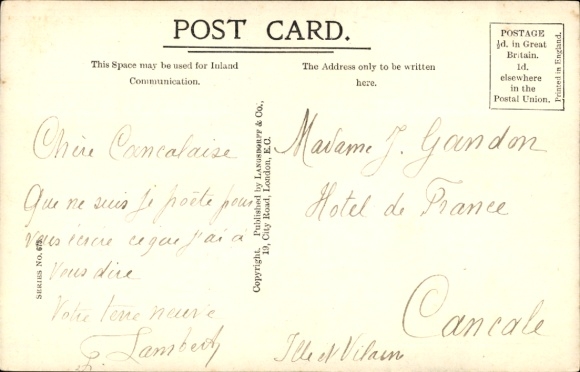 POST CARD.
This Space may be used for Inland
Communication.
The Address only to be written
here.
POSTAGE
½d. in Great
Britain.
1d.
elsewhere
in the
Postal Union.
Printed in England.
Chère Cancalaise
Que ne suis je poète pour
vous écrire ce que j'ai à
vous dire
Votre terre neuve
Lambert
SERIES No.
Copyright. Published by LANGSDORFF & Co.,
19, City Road, London, E.C.
Madame J. Gandon
Hotel de France
Cancale
Ille et Vilaine